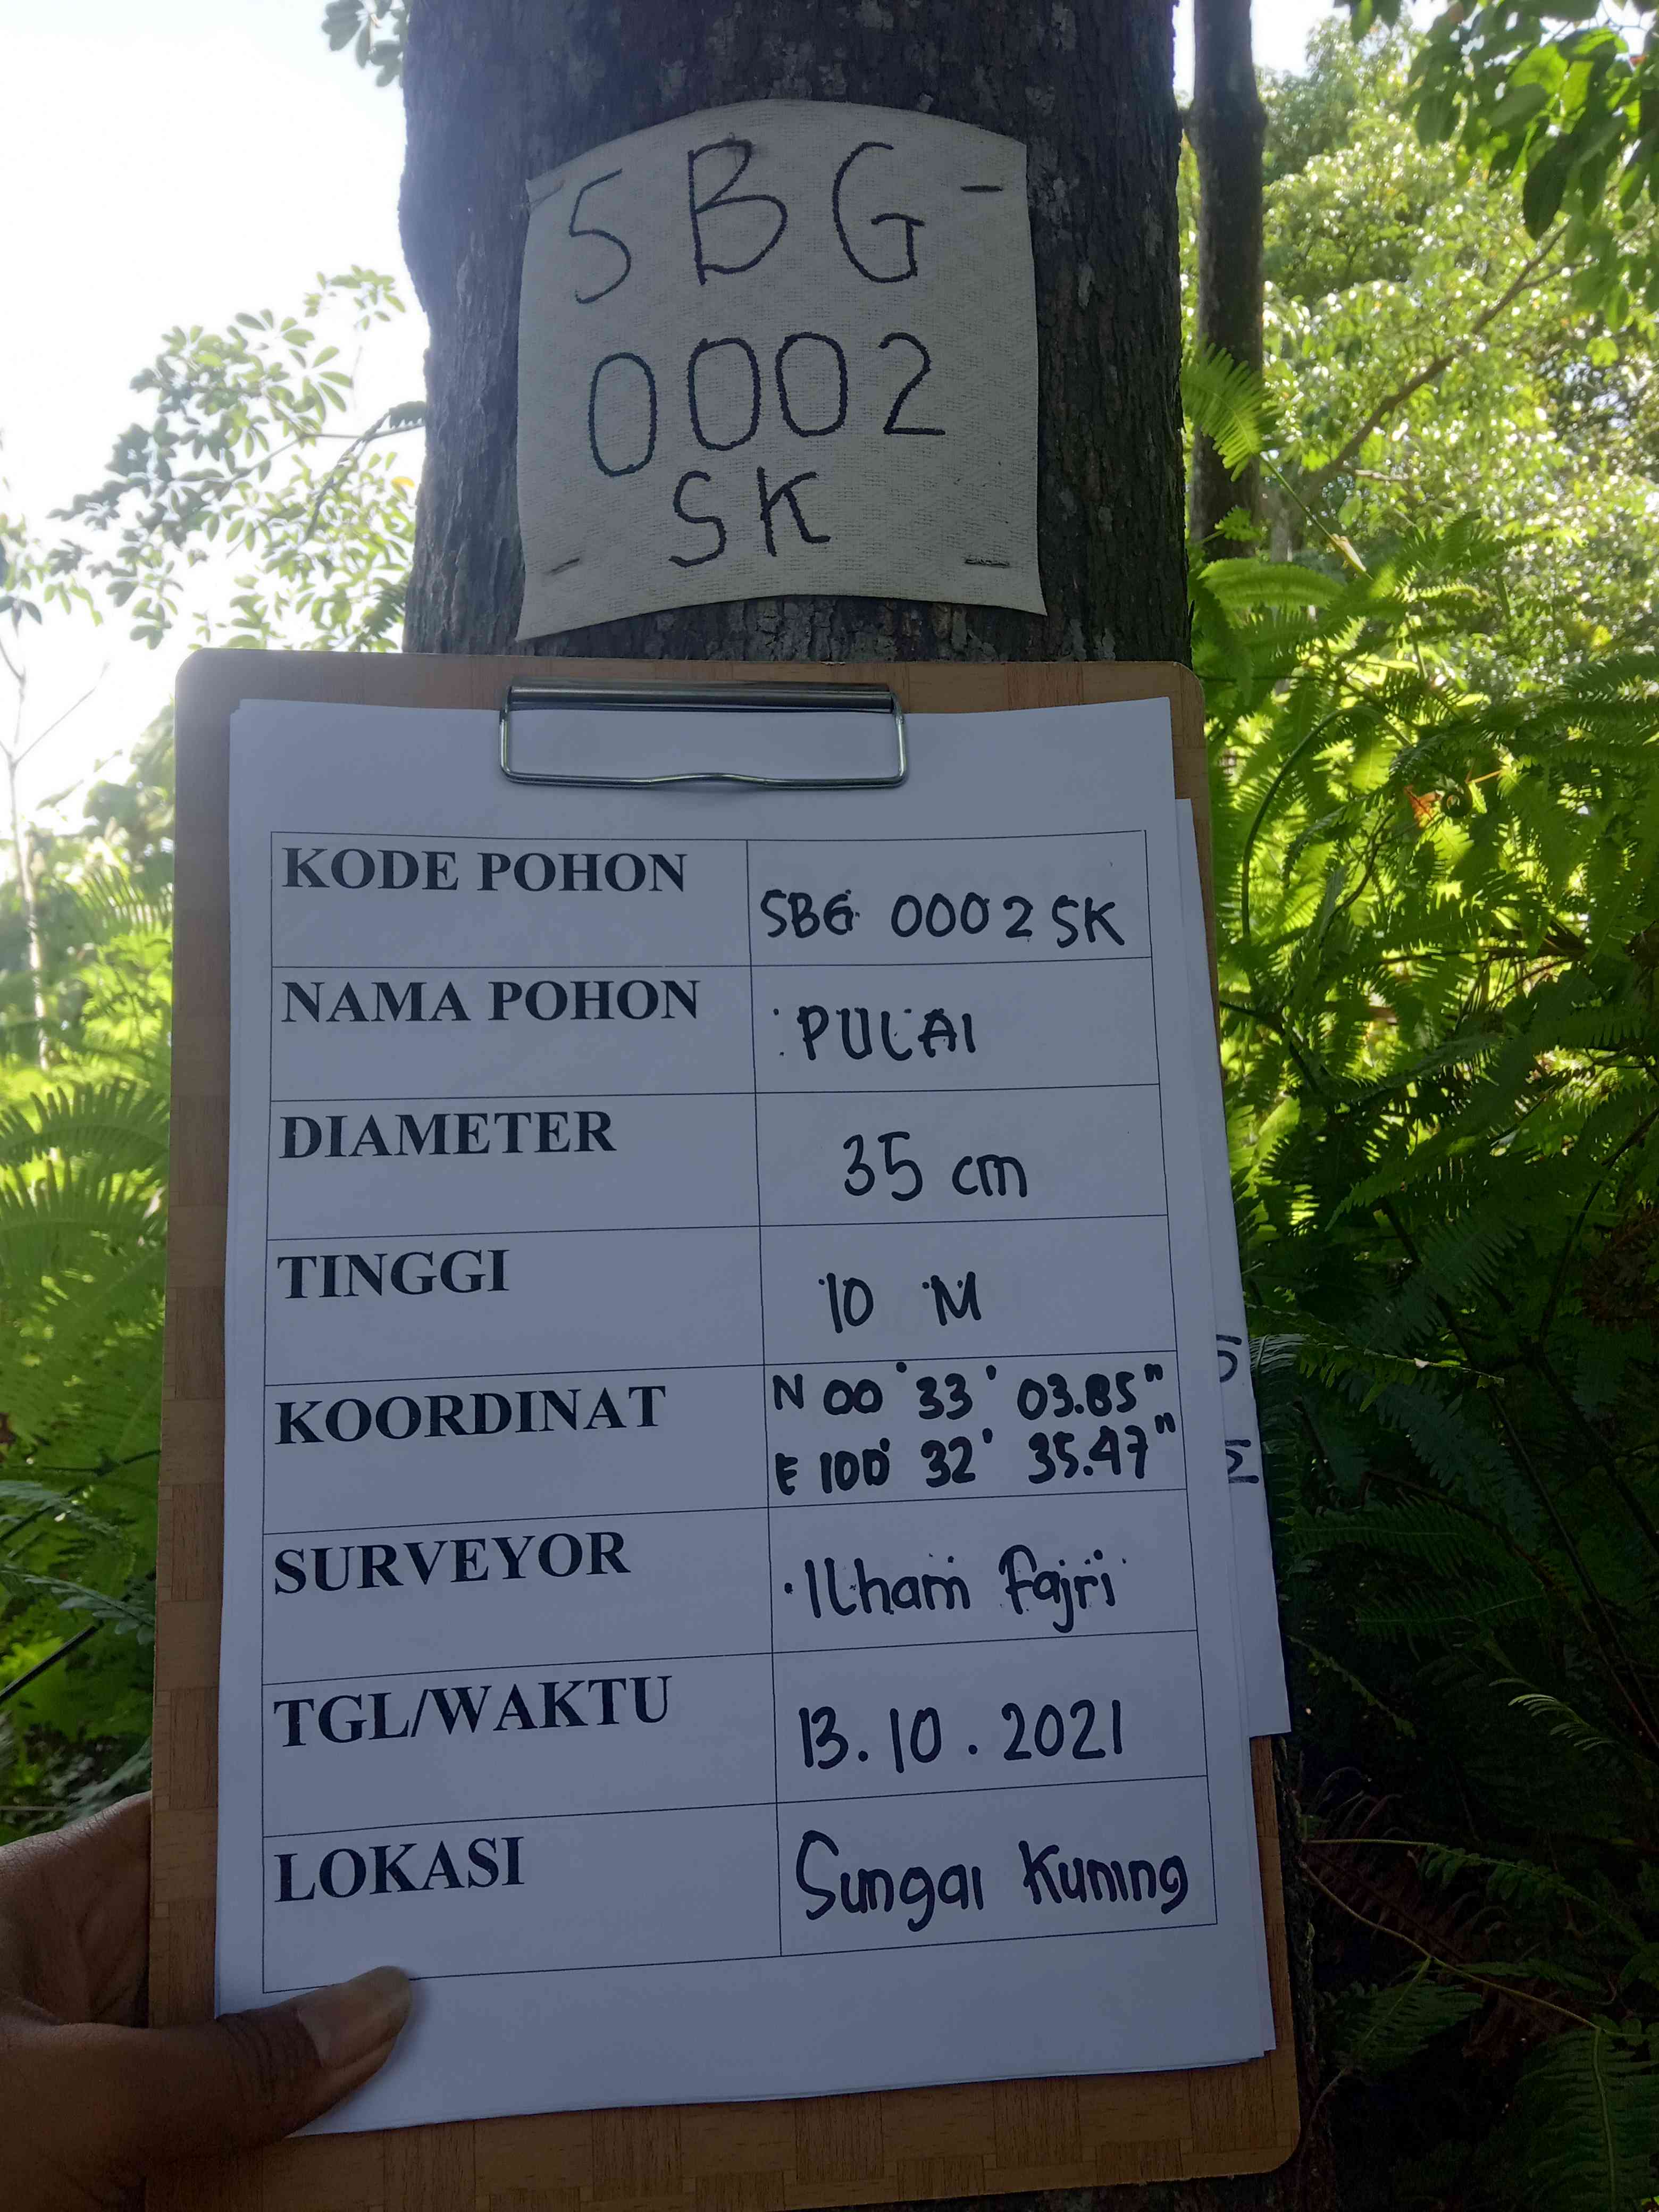 SBG-
0002
SK
KODE POHON SBG 0002 SK
NAMA POHON : PULAI
DIAMETER 35 cm
TINGGI 10 M
KOORDINAT N 00° 33' 03.85"
E 100° 32' 35.47"
SURVEYOR Ilham Fajri
TGL/WAKTU 13.10.2021
LOKASI Sungai Kuning